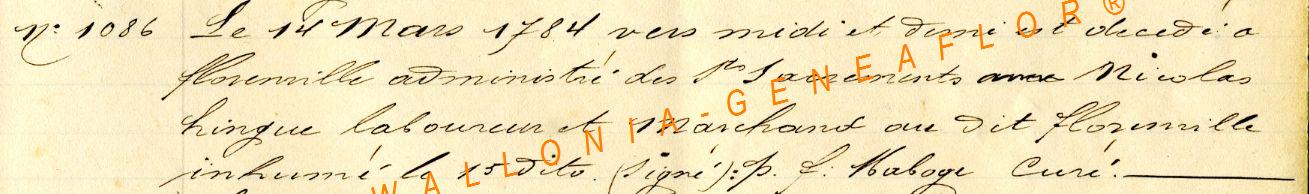 N° 1086 Le 14 Mars 1784 vers midi et demi est décedé a
florenville administré des Sts Sacrements Nicolas
hingue laboureur et Marchand au dit florenville
inhumé le 15 dito. (signé): p. f. Maboge Curé.
WALLONIA-GENEAFLOR®